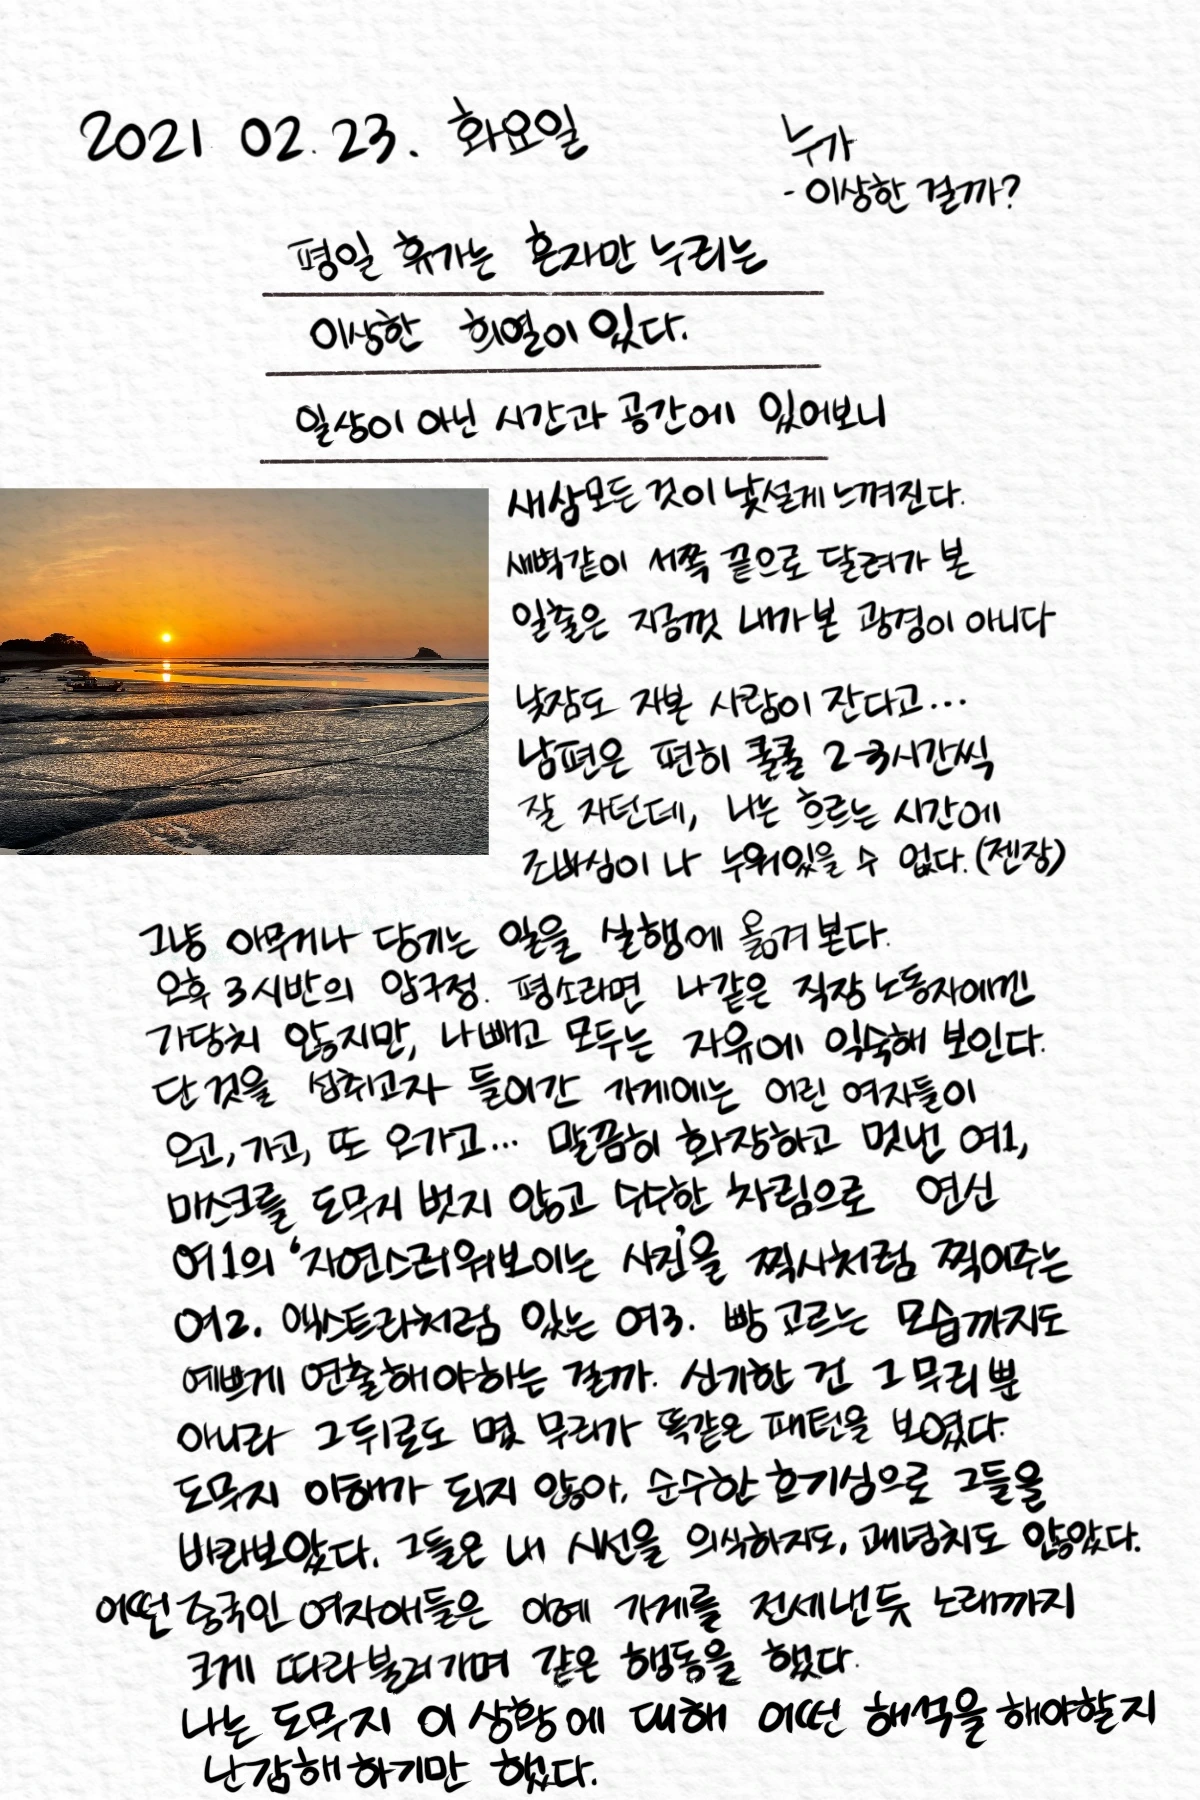 2021 02.23. 화요일
누가
- 이상한 걸까?
평일 휴가는 혼자만 누리는
이상한 희열이 있다.
일상이 아닌 시간과 공간에 있어보니
새삼모든 것이 낯설게 느껴진다.
새벽같이 서쪽 끝으로 달려가 본
일출은 지금껏 내가 본 광경이 아니다
낮잠도 자본 사람이 잔다고...
남편은 편히 쿨쿨 2-3시간씩
잘 자던데, 나는 흐르는 시간에
조바심이 나 누워있을 수 없다. (젠장)
그냥 아무거나 당기는 일을 실행에 옮겨 본다.
오후 3시반의 압구정. 평소라면 나같은 직장 노동자에겐
가당치 않지만, 나빼고 모두는 자유에 익숙해 보인다.
단 것을 섭취고자 들어간 가게에는 어린 여자들이
오고, 가고, 또 오가고... 말끔히 화장하고 멋낸 여1,
마스크를 도무지 벗지 않고 수수한 차림으로 연신
여1의 '자연스러워보이는 사진'을 찍사처럼 찍어주는
여2. 엑스트라처럼 있는 여3. 빵 고르는 모습까지도
예쁘게 연출해야하는 걸까. 신기한 건 그 무리뿐
아니라 그 뒤로도 몇 무리가 똑같은 패턴을 보였다.
도무지 이해가 되지 않아, 순수한 호기심으로 그들을
바라보았다. 그들은 내 시선을 의식하지도, 괘념치도 않았다.
어떤 중국인 여자애들은 아예 가게를 전세낸듯 노래까지
크게 따라불러가며 같은 행동을 했다.
나는 도무지 이 상황에 대해 어떤 해석을 해야할지
난감해하기만 했다.